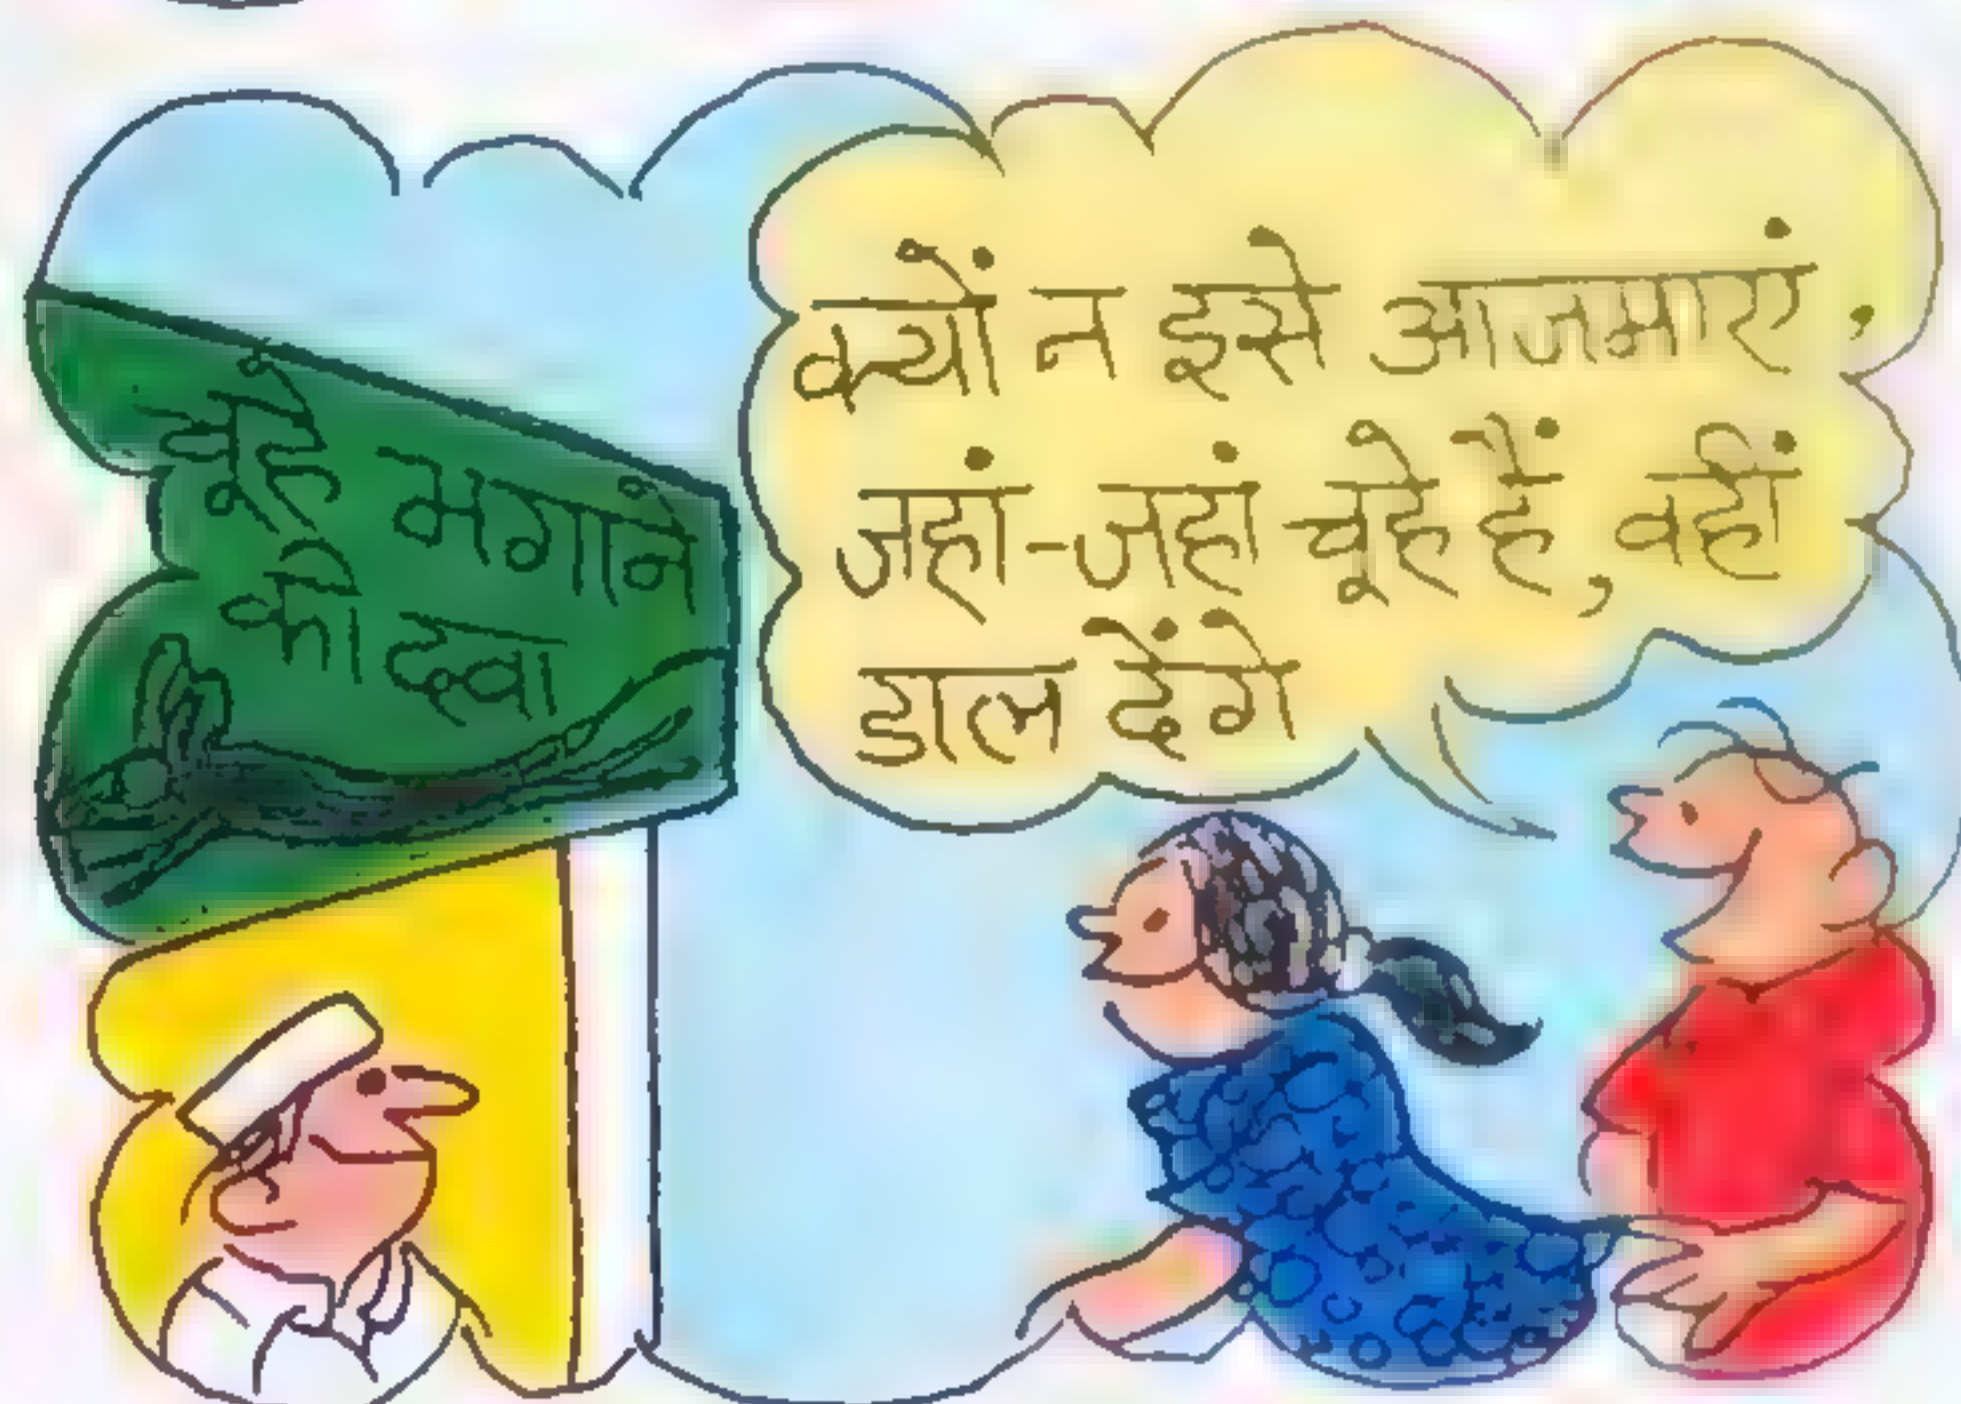 चूहे भगाने
की दवा
क्यों न इसे आजमाएं,
जहां-जहां चूहे हैं, वहीं
डाल देंगे